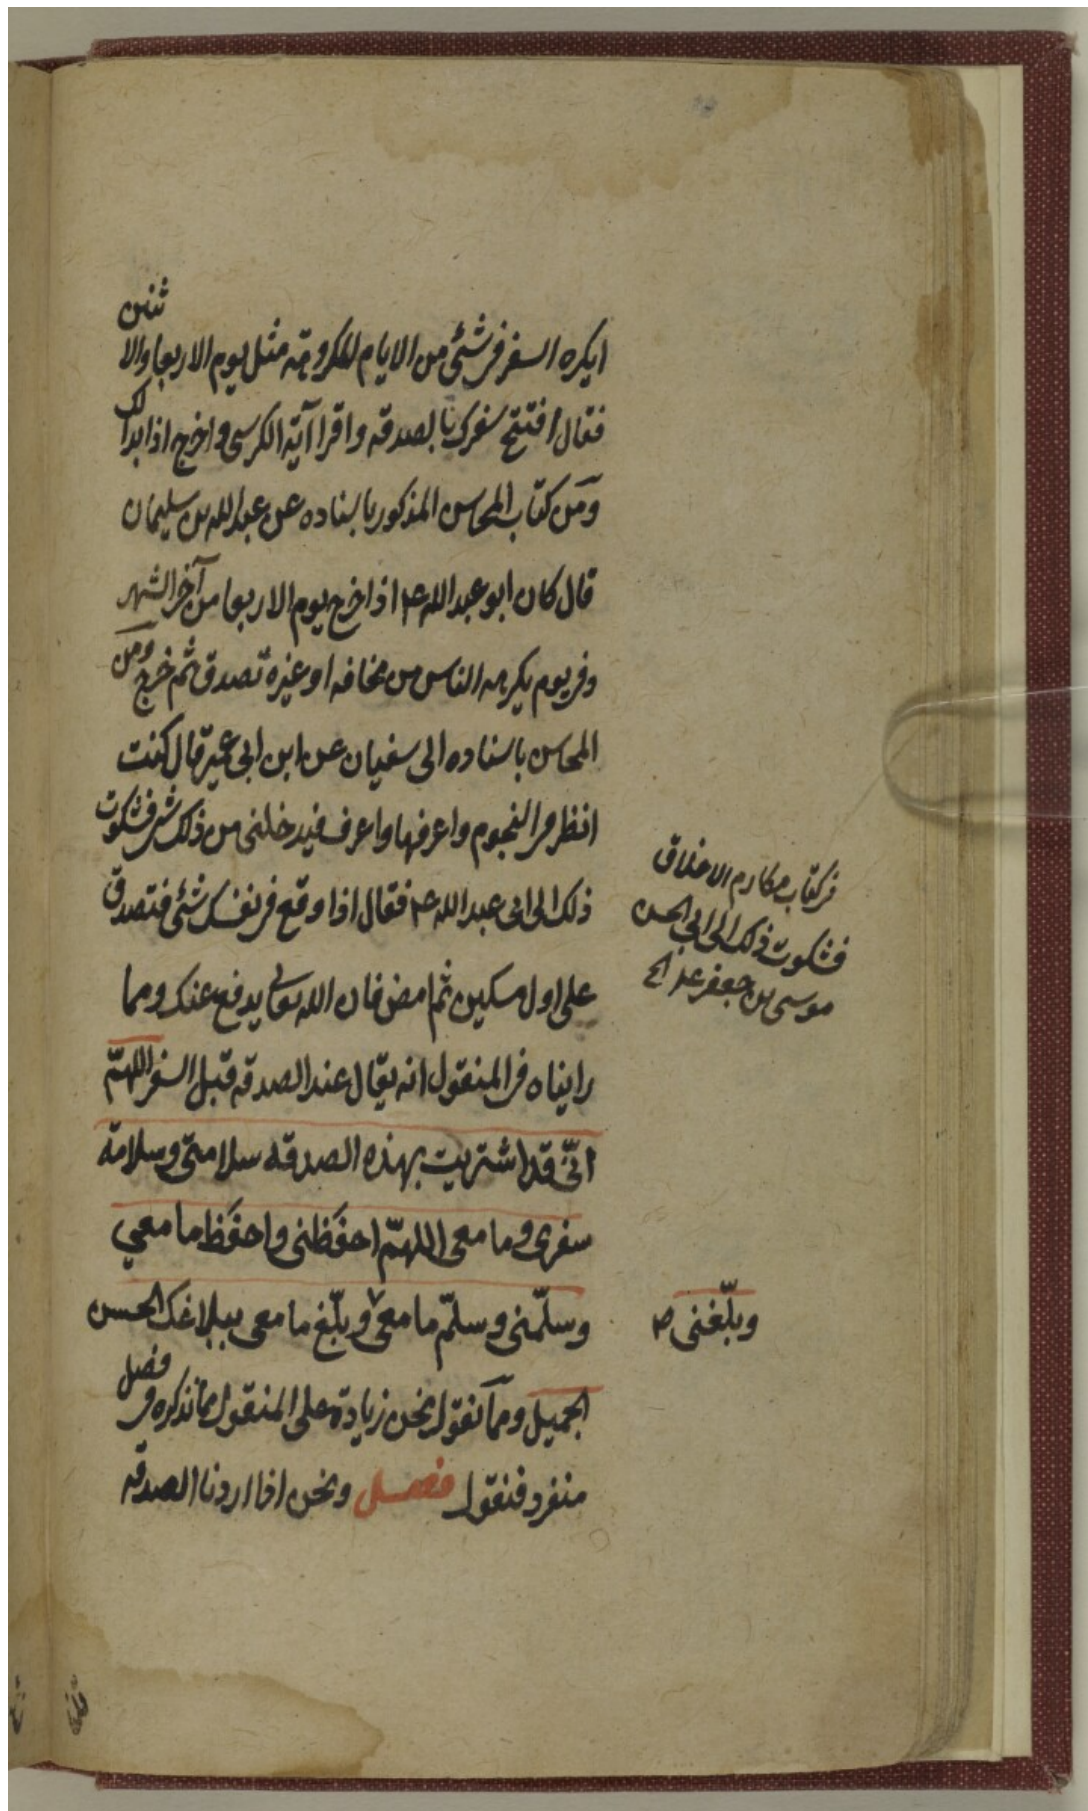 ايكره السفر فى شئ من الايام المكروهة مثل يوم الاربعا والا
ثنين
فقال افتتح سفرك بالصدقه واقرا آية الكرسى واخرج اذا بدا
لك
ومن كتاب المحاسن المذكور باسناده عن عبد الله بن سليمان
قال كان ابو عبد الله ع اذا خرج يوم الاربعا من آخر الشهر
وفى يوم يكرهه الناس من محاقه او غيره تصدق ثم خرج ومن
المحاسن باسناده الى سفيان عن ابن ابى عمير قال كنت
انظر فى النجوم واعرفها واعرف فيدخلنى من ذلك شئ فشكوت
ذلك الى ابى عبد الله ع فقال اذا وقع فى نفسك شئ فتصدق
على اول مسكين ثم امض فان الله تعالى يدفع عنك ومما
رايناه فى المنقول انه يقال عند الصدقه قبل السفر اللهمّ
انّى قد اشتريت بهذه الصدقه سلامتى وسلامة
سفرى وما معى اللهمّ احفظنى واحفظ ما معي
وسلّمنى وسلّم ما معى وبلّغ ما معى ببلاغك الحسن
الجميل ومما نقول نحن زيادة على المنقول مما نذكره فى فصل
منفرد فنقول فصل ونحن اذا اردنا الصدقه
فى كتاب مكارم الاخلاق
فشكوت ذلك الى ابى الحسن
موسى بن جعفر
وبلّغنى ص